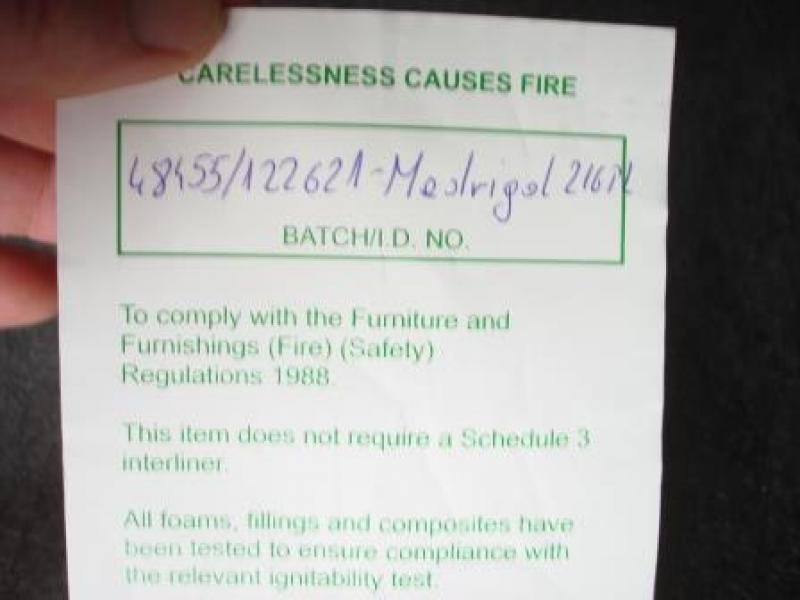 CARELESSNESS CAUSES FIRE
48455/122621-Madrigal
BATCH/I.D. NO.
To comply with the Furniture and
Furnishings (Fire) (Safety)
Regulations 1988.
This item does not require a Schedule 3
interliner.
All foams, fillings and composites have
been tested to ensure compliance with
the relevant ignitability test.